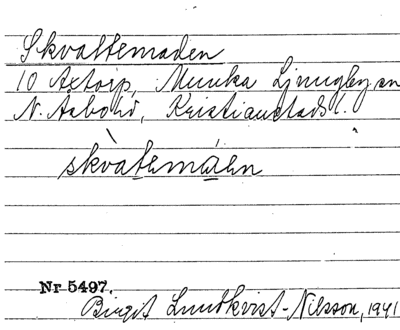 Skvattemaden
10 Axtorp, Munka Ljungby sn
N. Åsbo hd, Kristianstads l.
skvàtemáen
Nr 5497.
Birgit Lundkvist-Nilsson, 1941